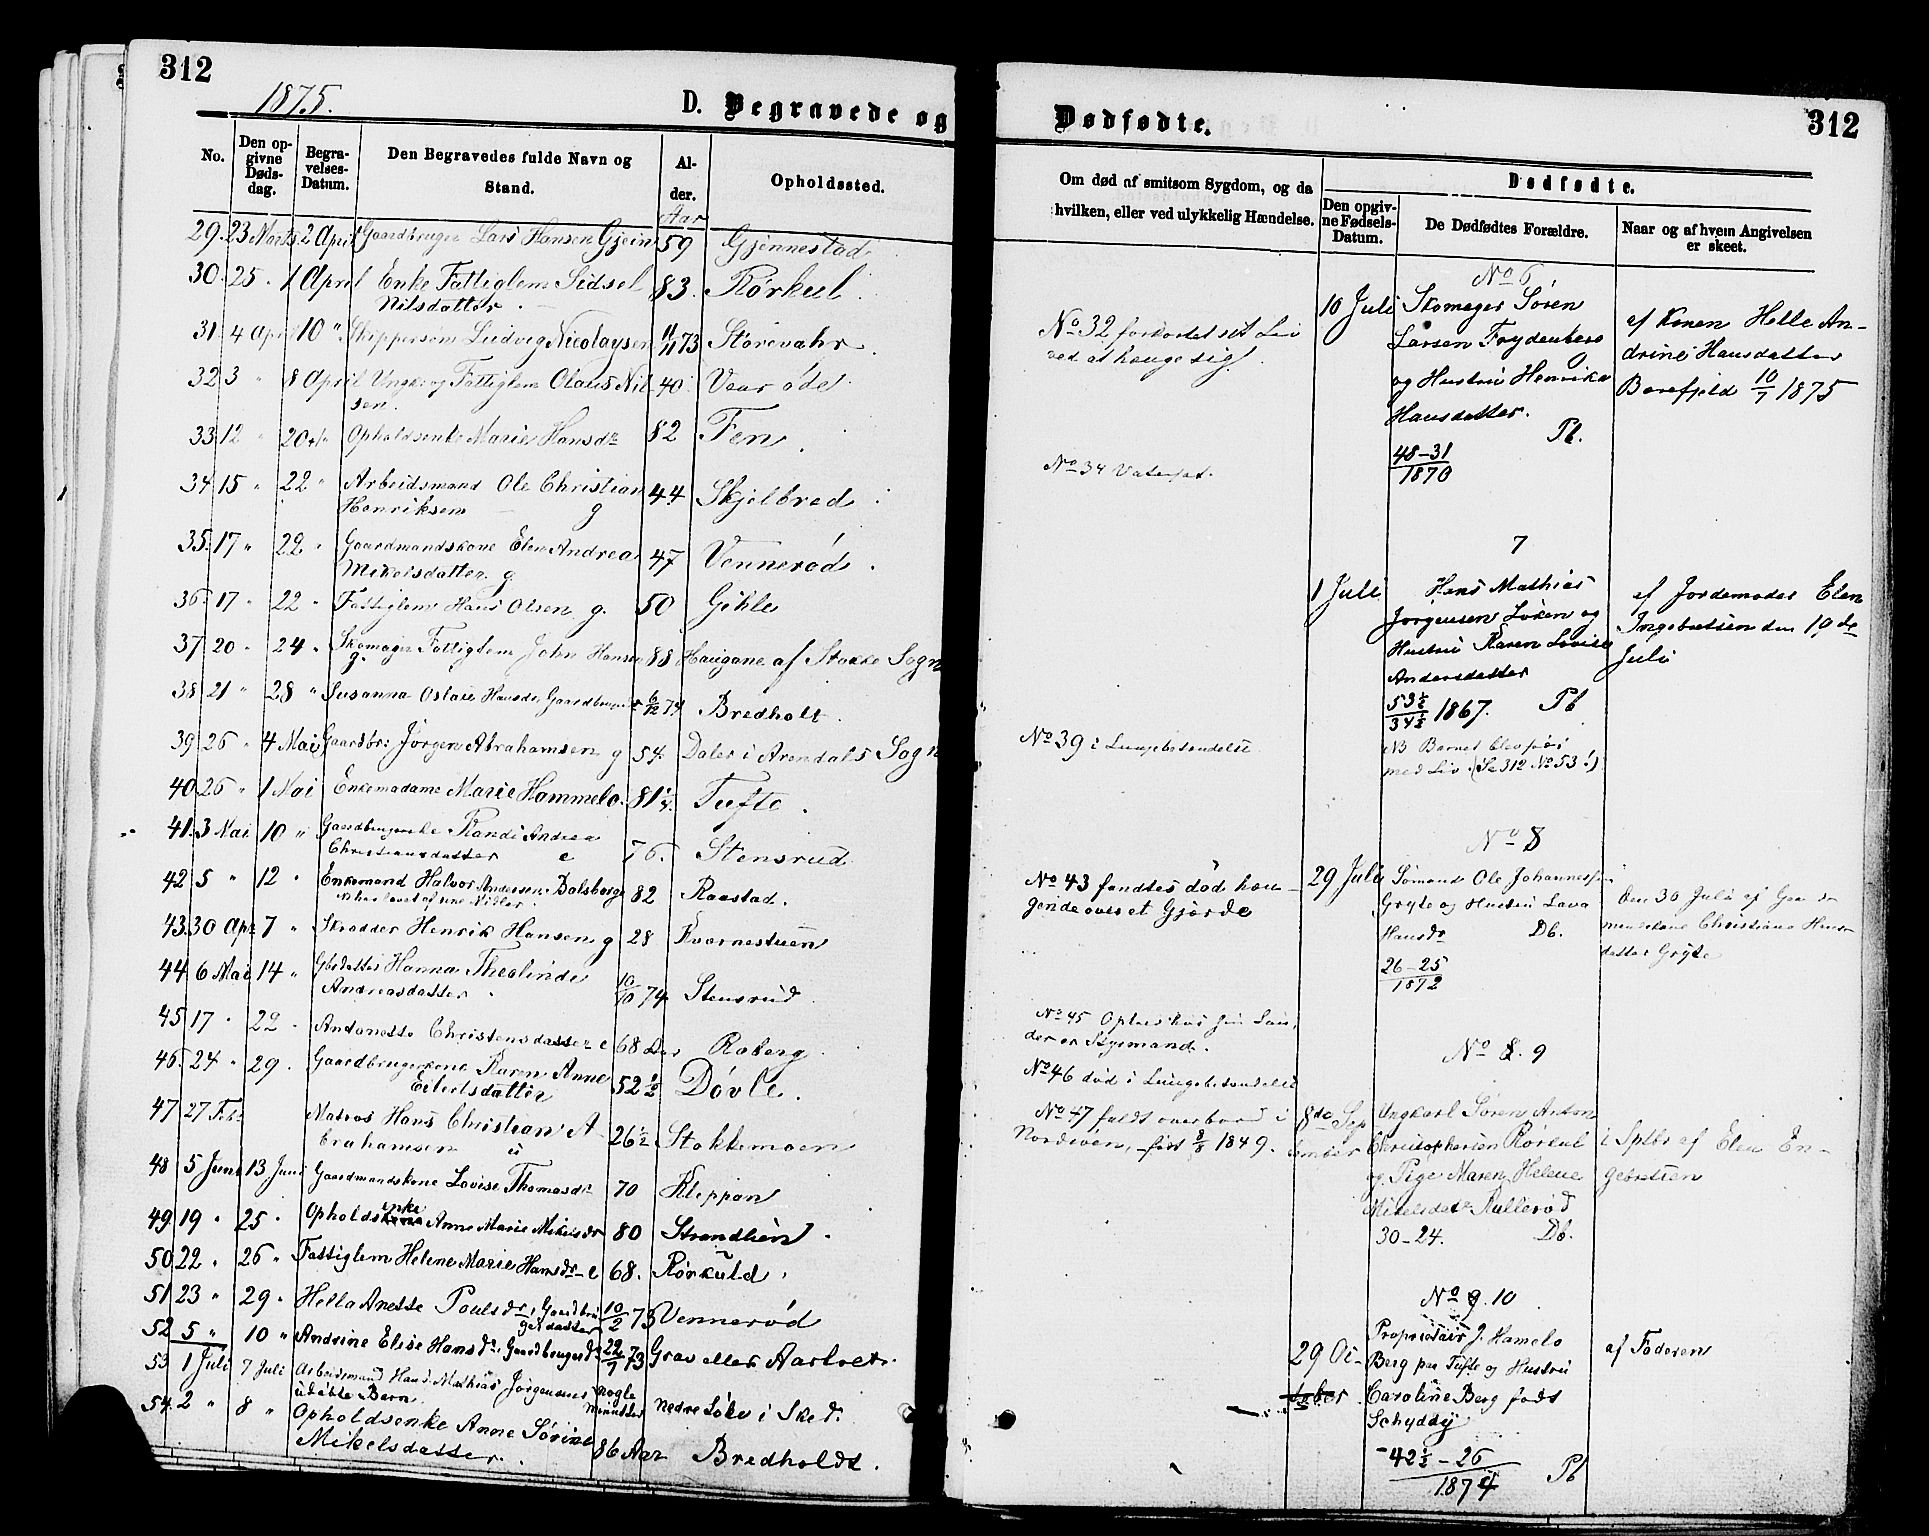 312
1875.
D. Begravede og
No.
Den op-
givne
Døds-
dag.
Begra-
velses-
Datum.
Den Begravedes fulde Navn og
Stand.
Al-
der.
Aar
Opholdssted.
29. 23 Marts 2 April Gaardbruger Lars Hansen Gjein 59 Gjennestad
30. 25 " 1 April Enke Fattiglem Sidsel 83. Rørkul
Nilsdatter.
31. 4 April 10 " Skippersøn Ludvig Nicolaysen 11/11 73 Storevahr.
32. 3 " 8 April Ungk. og Fattiglem Olaus Nil- 40. Vaar øde
sen.
33. 12 " 20 " Opholdsenke Marie Hansdr 82 Fen.
34. 15 " 22 " Arbeidsmand Ole Christian 44 Skjelbred
Henriksen g
35. 17 " 22 " Gaardmandskone Elen Andrea 47 Vennerød.
Mikelsdatter. g.
36. 17 " 22 " Fattiglem Hans Olsen g. 50 Gihle
37. 20 " 24 " Skomager Fattiglem John Hansen 88 Haugane af Stokke Sogn
g.
38. 21 " 28 " Susanna Oslaie Hansdr. 6/12 74 Bredholt.
39. 26 " 4 Mai Gaardbr: Jørgen Abrahamsen g 54. Daler i Arendals Sogn
40. 26 " 1 Mai Enkemadame Marie Hammelo. 81 Tufte.
41. 3 Mai 10 " Randi Andrea
Christiansdatter e 76. Stensrud.
42. 5 " 12 " Enkemand Halvor Andersen Dalsborge 82 Raastad.
43. 30 Apr 7 " Skrædder Henrik Hansen g 28 Kvarnestuen
44. 6 Mai 14 " Gbrdatter Hanna Theolinde
Andreasdatter 10/10 74 Stensrud.
45. 17 " 22 " Andanette Christensdatter e 68 Aar Roberg
46. 24 " 29 " Gaardbrugerkone Karen Anne 52 1/2 Døvle.
Eilertsdatter
47 27 Feb: Matros Hans Christian A- 26 1/2 Stokkemoen
brahamsen u
48 5 Juni 13 Juni Gaardmandskone Lovise Thomasdr 70 Kleppan
49. 19 " 25 " Opholdsenke Anne Marie Mikelsdr 80 Strandtien.
50. 22 " 26 " Fattiglem Helene Marie Hansdr e 68. Rørkuld.
51 23 " 29 " Hella Anette Poulsdr, Gaardbru- 10/2 73 Vennerød
gerdatter
52 5 " 10 " Andrine Elise Hansdr Gaardbrugerdr 22/7 73 Grav eller Aartvet.
53 1 Juli 7 Juli Arbeidsmand Hans Mathias Jørgensens nogle
udøbte Barn minutter Nedre Løke i Skee.
54. 2 " 8 " Opholdsenke Anne Sørine
Mikelsdatter. 86 Aar Bredholdt.
Dødfødte.
312
Om død af smitsom Sygdom, og da
hvilken, eller ved ulykkelig Hændelse.
Dødfødte.
Den opgiv-
ne Fødsels-
Datum.
De Dødfødtes Forældre.
Naar og af hvem Angivelsen
er skeet.
No 32 forkortet sit Liv
ved at hænge sig.
No 34 Vatersot.
No 39 i Lungebetændelse
No 43 fandtes død hæn-
gende over et Gjærde
No 45
der er Styrmand.
No 46 død i Lungebetændelse
No 47 faldt overbord i
Nordsøen, født 8/8 1849.
No 6
10 Juli Skomager Søren
Larsen Frydenberg
og Hustru Henrika
Hansdatter.
Pb.
48-31
1870
af Konen Helle An-
drine Hansdatter
Borefjeld 10/7 1875
7
1 Juli. Hans Mathias
Jørgensen Løken og
Hustru Karen Lovise
Andersdatter
53 1/2
34 1/2 1867. Pb
NB Barnet blev født
med Liv. (Se 312 No 53!)
af Jordemoder Elen
Ingebretsen den 19de
Juli
No 8
29 Juli Sømand Ole Johannessen
Gryte og Hustru Lava
Hansdr Db.
26-25
1872
Den 30 Juli af Gaard-
mandskone Christiane Hans-
datter Gryte
No 8. 9
8de Sep-
tember
Ungkarl Søren Anton
Christophersen Rørkul
og Pige Maren Helene
Mikelsdatr Rullerød
30-24. Db.
i Sptbr af Elen En-
gebretsen
No 9. 10
29 Oc-
tober
Proprietair J. Hamelo
Berg paa Tufte og Hustru
Caroline Berg født
Schyddy
42 1/2-26
1874 Pb
af Faderen